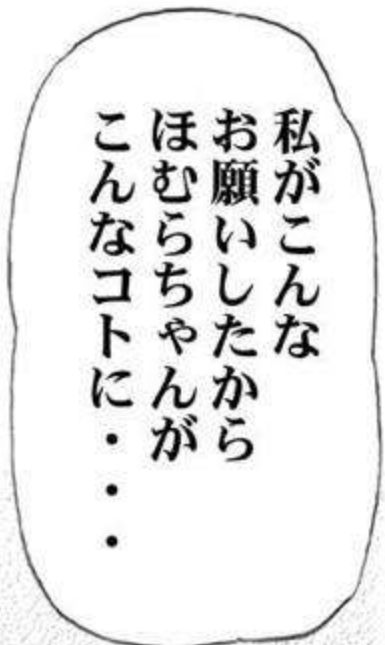 私がこんな
お願いしたから
ほむらちゃんが
こんなコトに・・・